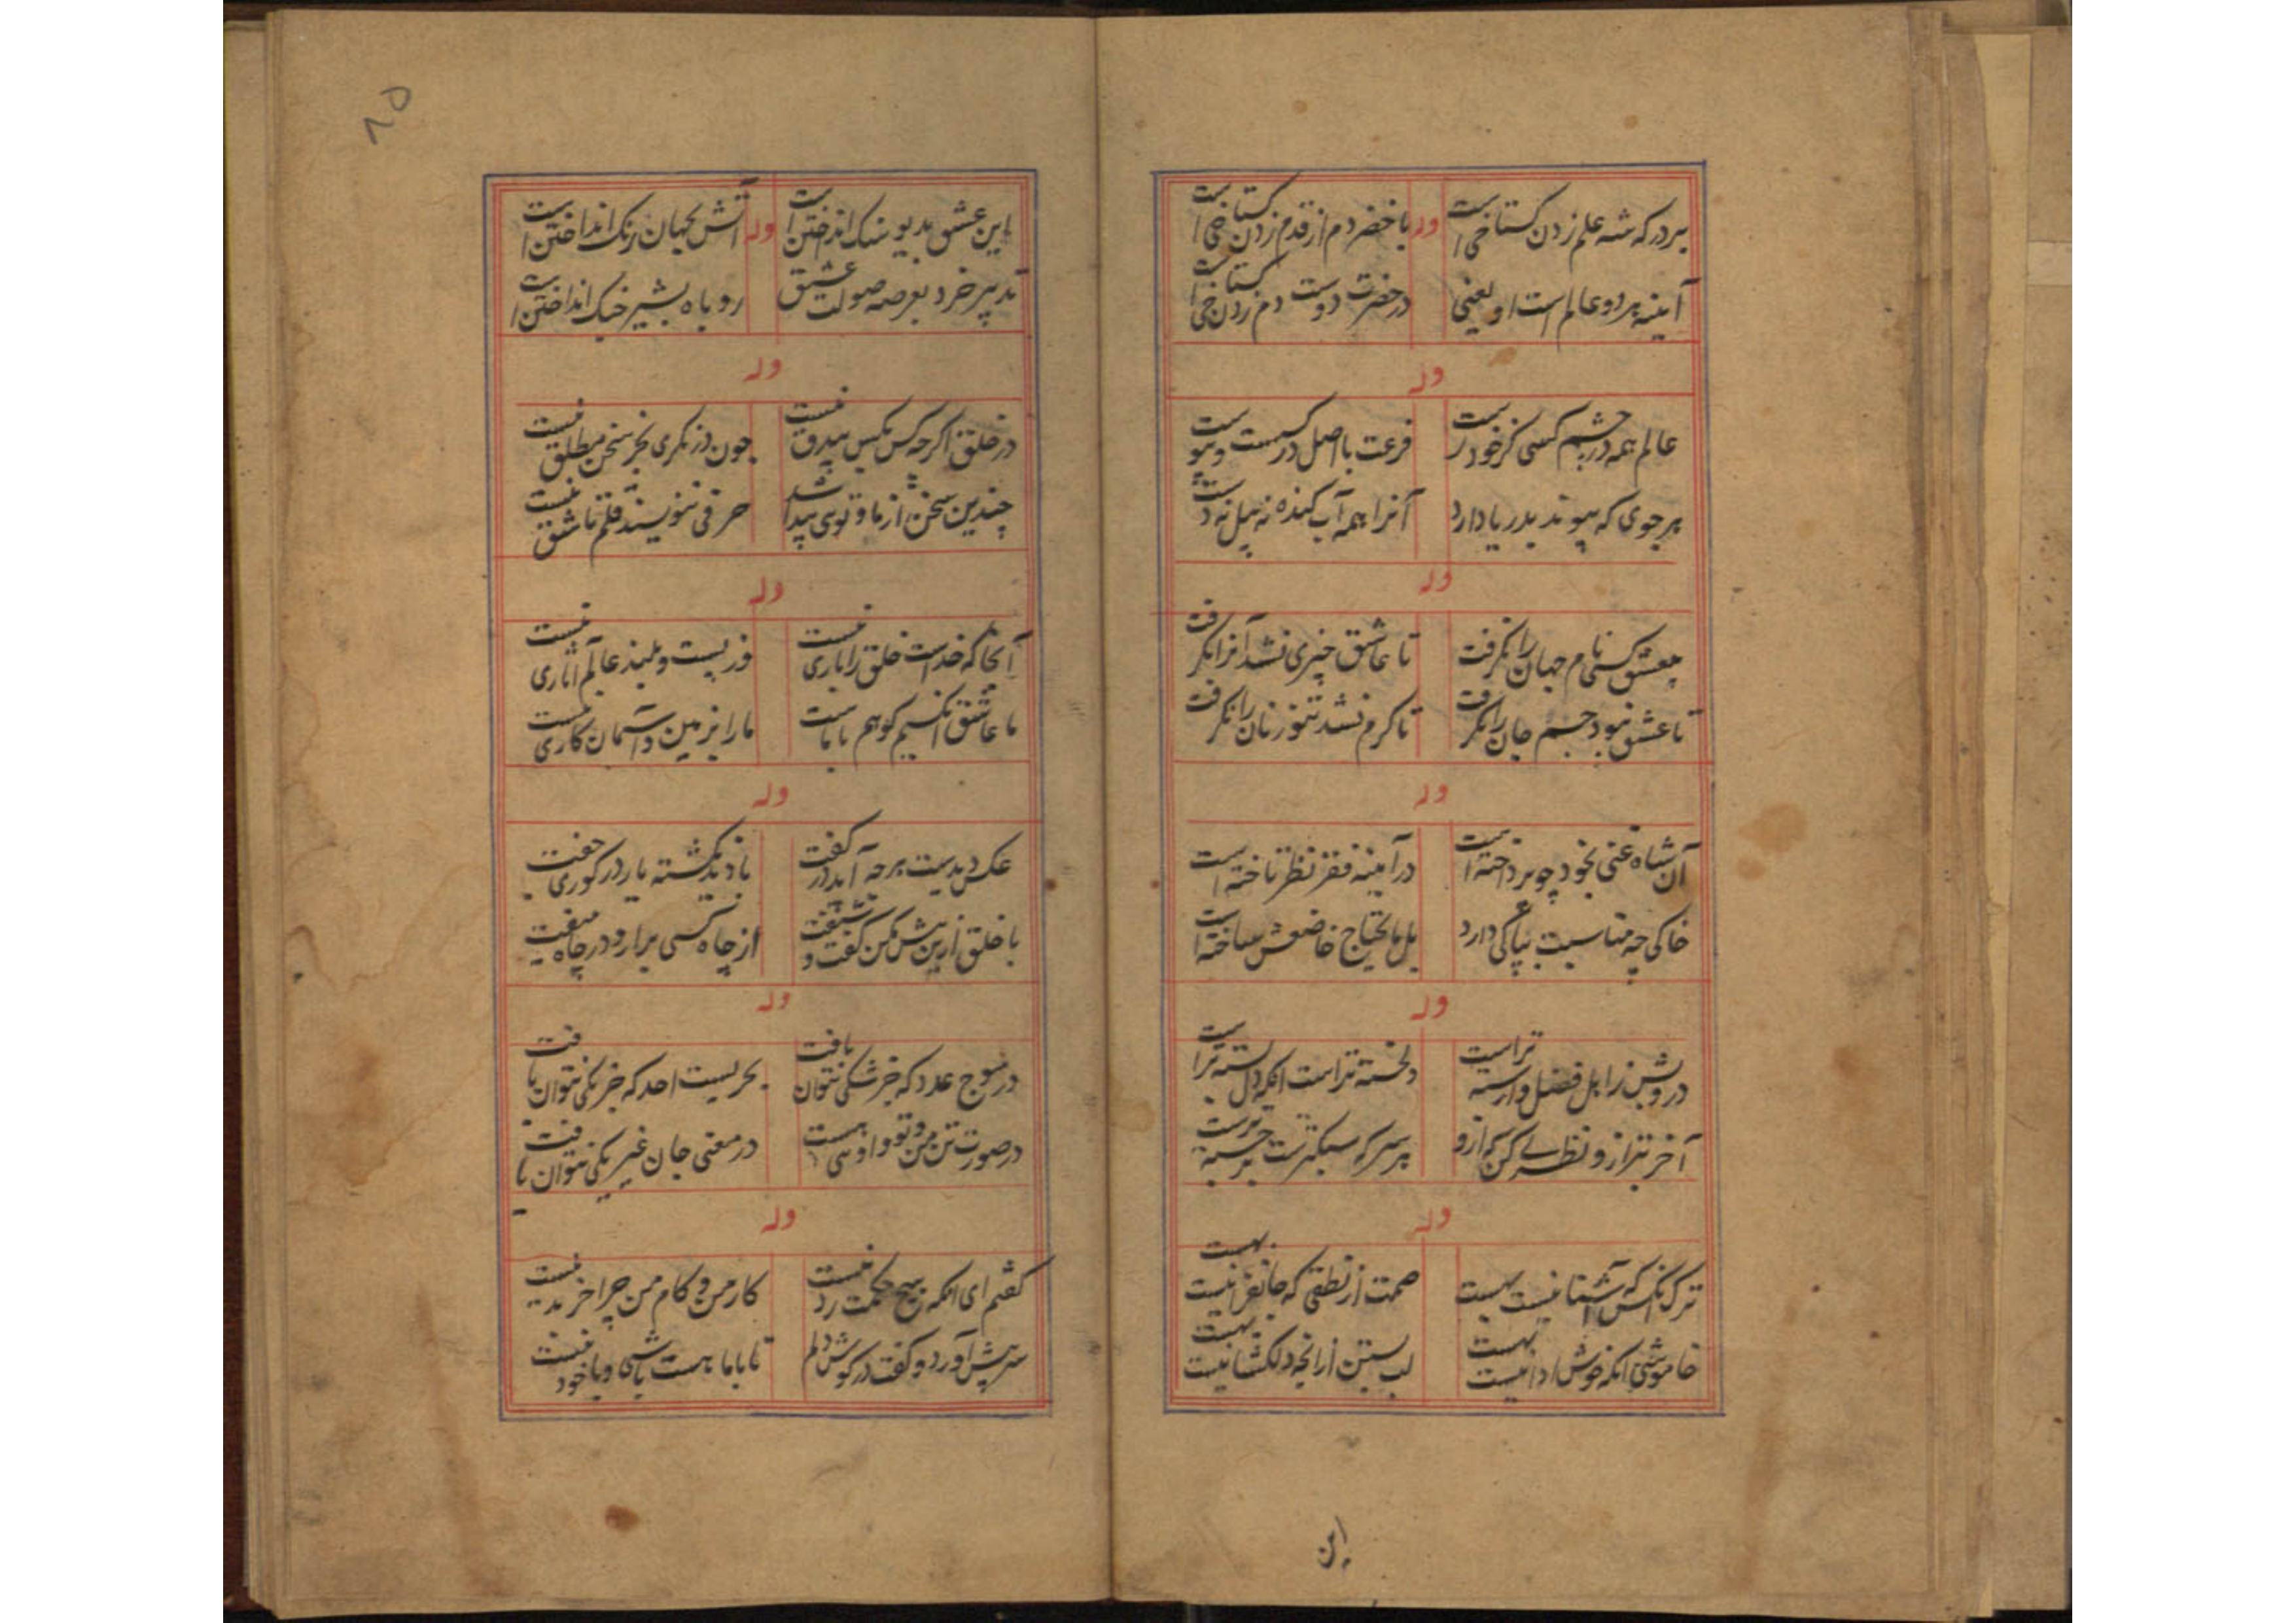 بر درکه شه علم زدن کستاخی است وله با خضر دم از قدم زدن کستاخی است
آیینه هر دو عالم است او یعنی در حضرت دوست دم زدن کستاخی است
وله
عالم همه در چشم کسی کز خود رست فرعت با اصل درست و
هر جوی که پیوند بدریا دارد آنرا همه آب کنده نه پیل نه
وله
بیعشق کسی نام جهان را نکرفت تا عاشق چیزی نشد آنرا نکرفت
تا عشق نبود جسم جان را نکرفت تا کرم نشد تنور نان را نکرفت
وله
آن شاه غنی بخود چو پرداخته است در آیینه فقر نظر تاخته است
خاکی چه مناسبت بپاکی دارد بل ما یحتاج خاص خویش ساخته است
وله
درویش ز اهل فضل وارسته تراست دلخسته تراست انکه دل بسته تراست
آخر بترازو نظری کن که ازو هر سر که سبکترست برجسته ترست
وله
ترک انکس که آشنا نیست بهست صمت از نطقی که جانفزا نیست بهست
خاموشی انکه خوش ادا نیست بهست لب بستن ازانچه دلکشا نیست بهست
این
۸۵
این عشق بدیو سنک انداختن است وله آتش بجهان رنک انداختن است
تدبیر خرد بعرصه صولت عشق روباه بشیر جنک انداختن است
وله
در خلق اکرچه کس بکس بیدق نیست چون در نکری بجز سخن مطلق نیست
چندین سخن از ما و توی پیدا شد حرفی ننویسند قلم تا شق نیست
وله
آنجا که خداست خلق را باری نیست وز پست و بلند عالم آثاری نیست
ما عاشق انکسیم کو هم با ماست ما را بزمین و آسمان کاری نیست
وله
عکس دیدیست هرچه آید در کفت نادید کشته یار در کوری جفت
با خلق ازین بیش مکن کفت و شنفت از چاه کسی برار و در چاه میفت
وله
در موج عدد که جز شکی نتوان یافت بحریست احد که جز یکی نتوان یافت
در صورت تن من و تو و اوئی هست در معنی جان غیر یکی نتوان یافت
وله
کفتم ای انکه هیچ حکمت رد نیست کار من و کام من چرا جز بد نیست
سر پیش آورد و کفت در کوش دلم تا با ما هست باشی و با خود نیست